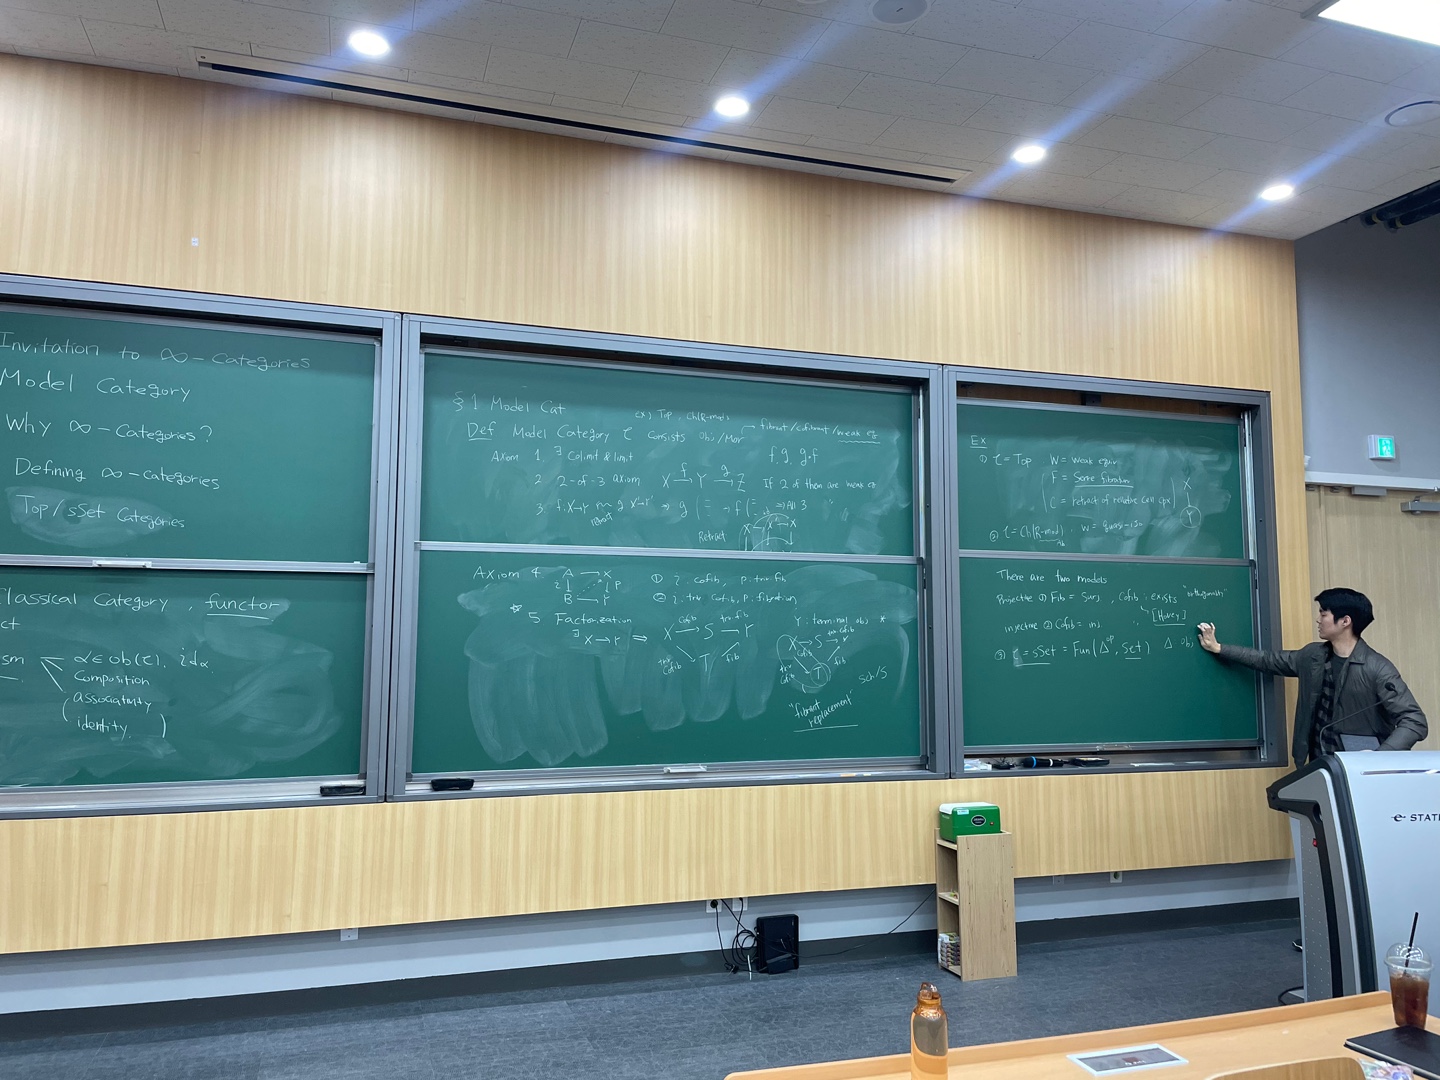 Invitation to ∞-Categories
Model Category
Why ∞-Categories?
Defining ∞-categories
Top/sSet Categories
Classical Category, functor
α∈ob(τ), idα
Composition
(associativity
identity )
§1 Model Cat
ex) Top, Ch(R-mod)
Def Model Category τ consists obj/Mor
fibrant/cofibrant/weak eq
Axiom 1. ∃ Colimit & limit
f. g. g∘f
2. 2-of-3 axiom X f→ Y g→ Z If 2 of them are weak eq
3. ⇒ All 3
Retract
Axiom 4. A → X
i↓ ↓p
B → Y
① i: cofib, p: triv fib
② i: triv cofib, p: fibration
5 Factorization
∃ X→Y ⇒
X cofib→ S triv fib→ Y
triv cofib T fib
Y: terminal obj *
X → S → *
cofib triv fib
triv cofib T fib
Sch/S
"fibrant
replacement"
Ex
① τ = Top W = weak equiv
F = Serre fibration
C = retract of relative cell cpx
X
↓
Y
② τ = Ch(R-mod), W = quasi-iso
There are two models
Projective ① Fib = Surj, Cofib: exists "orthogonality"
[Hovey]
injective ② Cofib = inj.
③ τ = sSet = Fun(Δ^op, Set) Δ obj
e-STATI